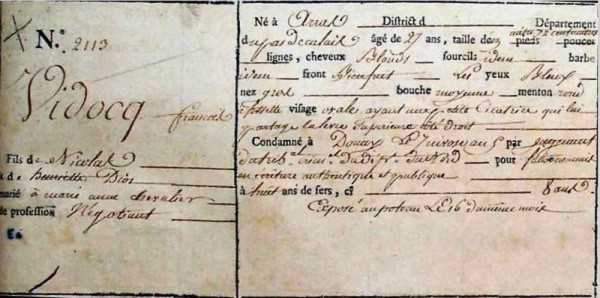 N.° 2113
Vidocq
francois
Fils de Nicolas
& d. henriette Dion
marié à marie anne chevalier
de profession Négotiant
Né à Arras District d Département
du pas de calais âgé de 27 ans, taille de mètre 72 centimètres pieds pouces
lignes, cheveux blonds sourcils idem barbe
idem front yeux Bleux
nez gros bouche moyenne menton rond
à fossette visage ovale ayant une petite Cicatrice qui lui
partage la levre Superieure côté droit
Condamné à Douay Le an 5 par jugement
du trib.al crim.el du dép.t du Nord pour
en écriture authentique et publique
à huit ans de fers, cy 8 ans.
Exposé au poteau Le 16 du même mois